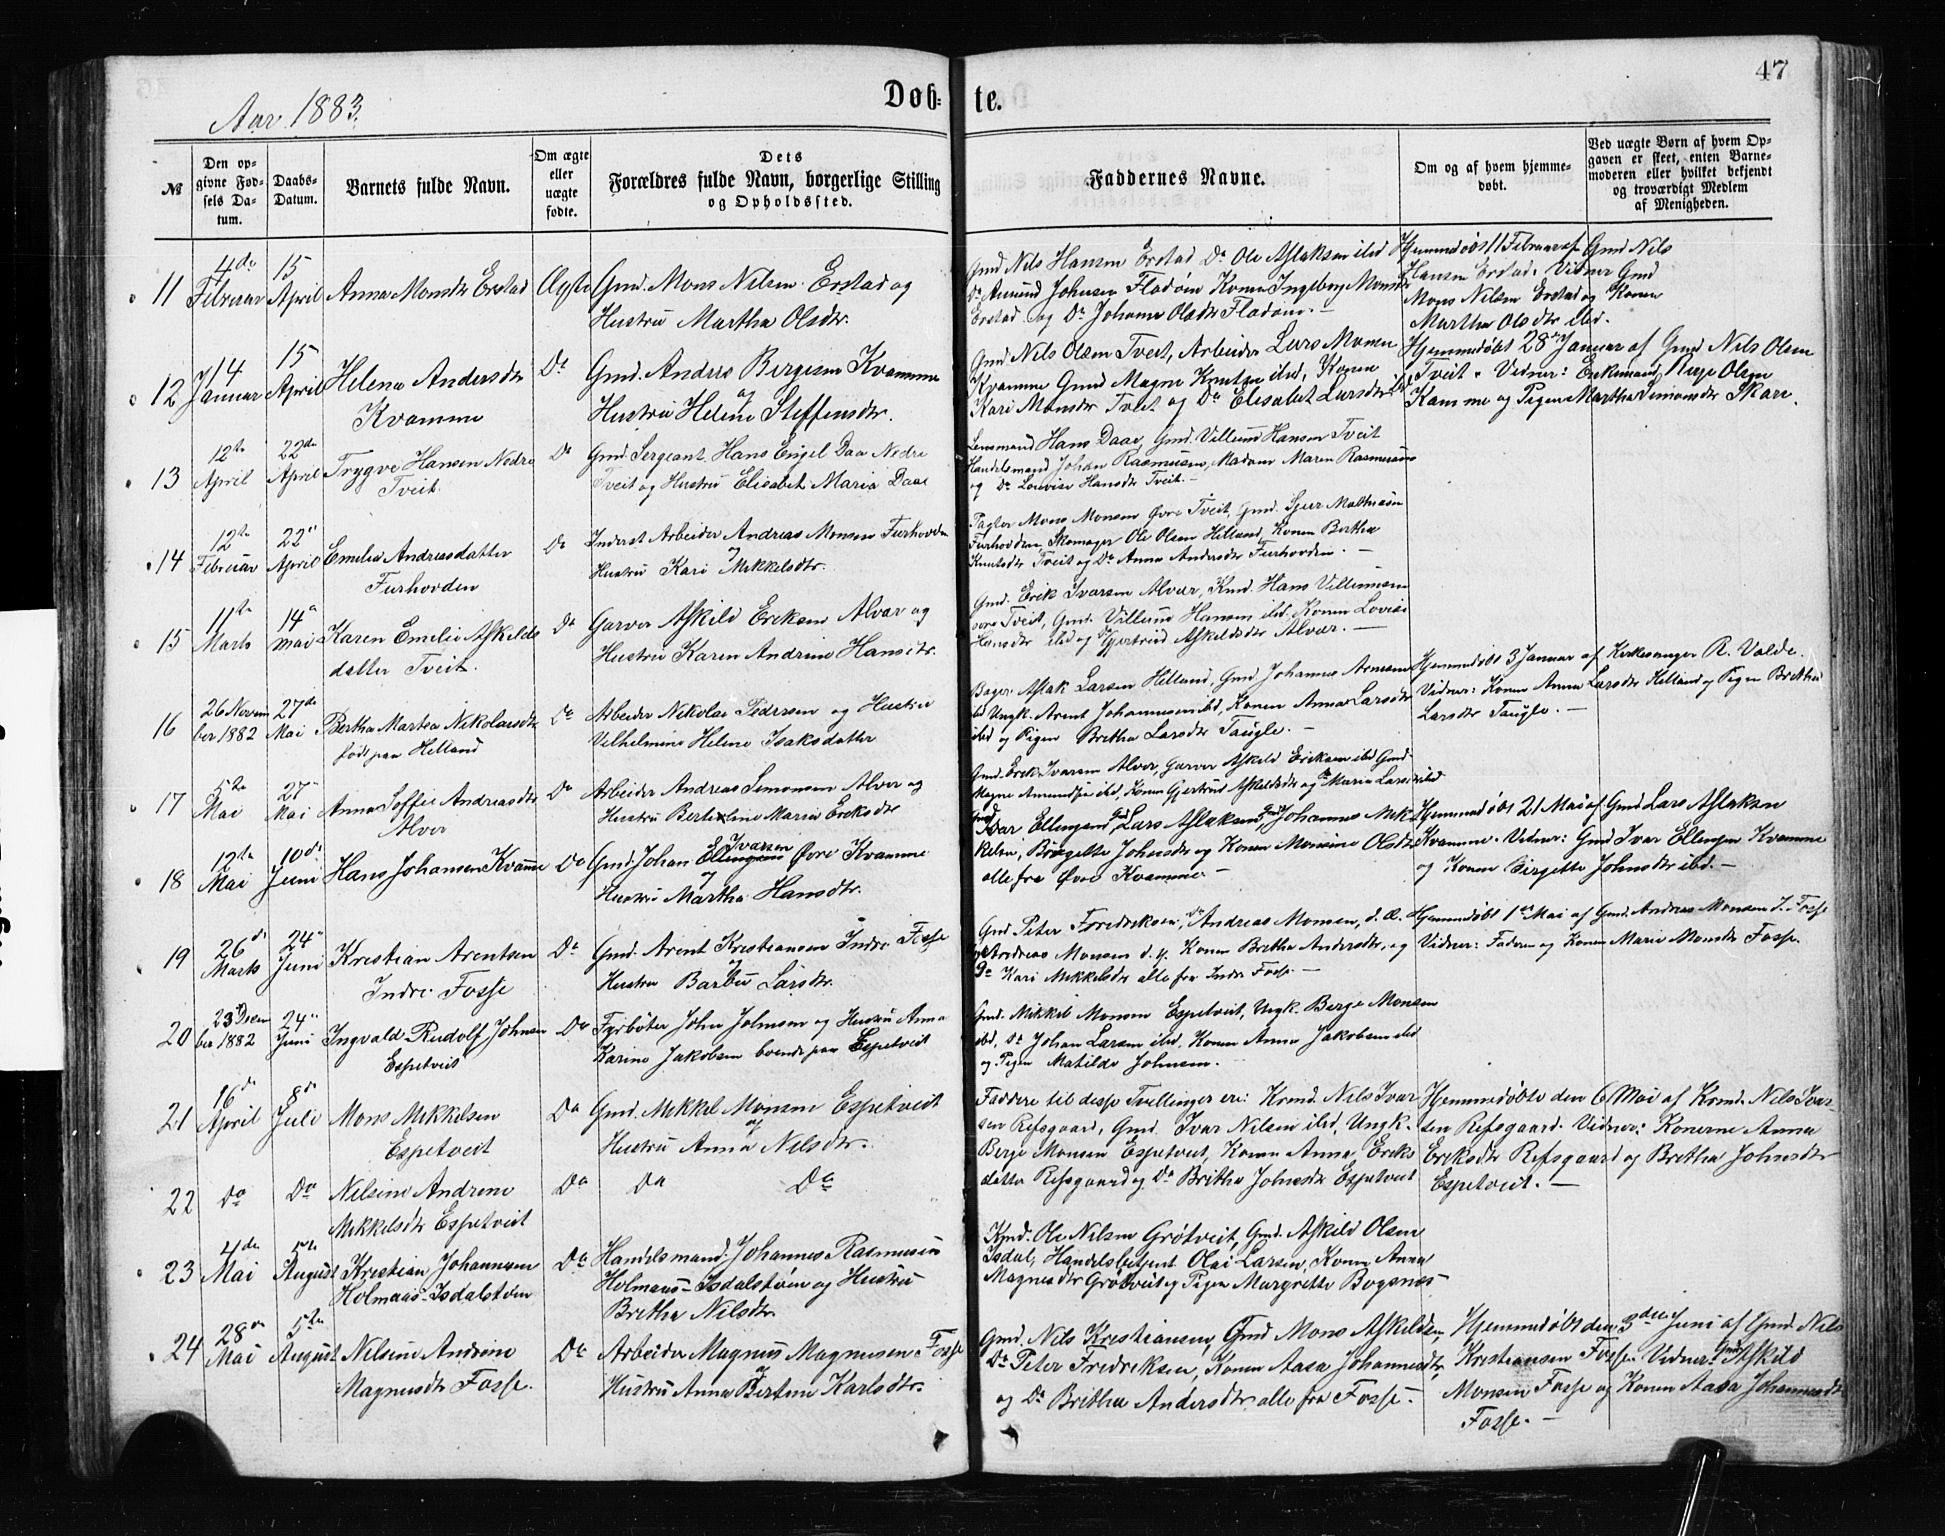 47
Aar 1883.
Døb- te.
№
Den op-
givne Fød-
sels Da-
tum.
Daabs-
Datum.
Barnets fulde Navn.
Om ægte
eller
uægte
fødte.
Dets
Forældres fulde Navn, borgerlige Stilling
og Opholdssted.
Faddernes Navne.
Om og af hvem hjemme-
døbt.
Ved uægte Børn af hvem Op-
gaven er skeet, enten Barne-
moderen eller hvilket bekjendt
og troværdigt Medlem
af Menigheden.
11
4de
Februar
15
April
Anna Monsdtr Erstad
Ægte
Gmd. Mons Nilsen Erstad og
Hustru Martha Olsdtr.
Gmd Nils Hansen Erstad Do Ole Aslaksen ibd
Do Amund Johnsen Fladøen Konen Ingeborg Monsdtr
Erstad og Do Johanna Olsdtr Fladøen. —
Hjemmedøbt 11 Februar af Gmd Nils
Hansen Erstad. Vidner Gmd
Mons Nilsen Erstad og Konen
Martha Olsdtr ibd.
12
14
Januar
15
April
Helena Andersdtr
Kvamme
Do
Gmd. Anders Bergesen Kvamme
og
Hustru Helene Steffensdtr.
Gmd Nils Olsen Tveit, Arbeider Lars Monsen
Kvamme Gmd Magne Knutsen ibd, Konen
Kari Monsdtr Tveit og Do Elisabet Larsdtr ibd
Hjemmedøbt 28de Januar af Gmd Nils Olsen
Tveit. Vidner: Enkemand Mges Olsen
Kamme og Pigen Martha Simonsdtr Skare.
13
12te
April
22de
April
Trygve Hansen Nedre
Tveit
Do
Gmd. Sergeant Hans Engel Daa Nedre
Tveit og Hustru Elisabet Maria Daae
Lensmand Hans Daae, Gmd. Villum Hansen Tveit
Handelsmand Johan Rasmusen, Madam Maren Rasmusen
og Do Lovise Hansdtr Tveit. —
14
12te
Februar
22"
April
Emelie Andreasdatter
Furhovden
Do
Inderst Arbeider Andreas Monsen Furhovden
og
Hustru Kari Mikkelsdtr.
Pagter Mons Monsen Øvre Tveit, Gmd. Sjur Mathiasen
Furhovden Skomager Ole Olsen Helland, Konen Bertha
Knutsdtr Tveit og Do Anna Andersdtr Furhovden. —
15
11te
Marts
14"
Mai
Karen Emelie Askilds
datter Tveit.
Do
Garver Askild Eriksen Alver og
Hustru Karen Andrine Hansdtr.
Gmd. Erik Ivarsen Alver, Kmd. Hans Villumsen
øvre Tveit, Gmd. Villum Hansen ibd. Konen Lovise
Hansdtr ibd og Do Gjertrud Askildsdtr Alver. —
16
26 Novem
ber 1882
27de
Mai
Bertha Martea Nikolaisdtr
født paa Helland
Do
Arbeider Nikolai Pedersen og Hustru
Vilhelmine Helene Isaksdatter
Bager Aslak Larsen Helland, Gmd Johannes Arnesen
ibd Ungk. Arent Johannesen ibd, Konen Anna Larsdtr
ibd og Pigen Bretha Larsdtr Taugle. —
Hjemmedøbt 3 Januar af Kirkesanger R. Valde.
Vidner: Konen Anna Larsdtr Helland og Pigen Bretha
Larsdtr Taugle. —
17
5te
Mai
27"
Mai
Anna Soffie Andreasdtr
Alver
Do
Arbeider Andreas Simonsen Alver og
Hustru Berteline Maria Eriksdtr
Gmd. Erik Ivarsen Alver, Garver Askild Eriksen ibd Gmd
Magne Amundsen ibd, Konen Gjertrud Askildsdtr og Do Maria Larsdtr ibd
18
12te
Mai
10de
Juni
Hans Johansen Kvamme
Do
Ivarsen
Gmd. Johan Ellingsen Øvre Kvamme
og
Hustru Martha Hansdtr.
Gmd Ivar Ellingsen, Gmd Lars Aslaksen, Gmd Johannes Mik-
kelsen, Birgette Johnsdtr og Konen Monsine Olsdtr
alle fra Øvre Kvamme. —
Hjemmedøbt 21 Mai af Gmd Lars Aslaksen
Kvamme. Vidner: Gmd Ivar Ellingsen Kvamme
og Konen Birgette Johnsdtr ibd. —
19
26de
Marts
24"
Juni
Kristian Arentsen
Indre Fosse
Do
Gmd. Arent Kristiansen Indre Fosse
og
Hustru Barbu Larsdtr.
Gmd Peter Fredriksen, Do Andreas Monsen, d. Æ.
Do Andreas Monsen d. y. Konen Bretha Andersdtr, og
Do Kari Mikkelsdtr alle fra Indre Fosse. —
Hjemmedøbt 1ste Mai af Gmd. Andreas Monsen I. Fosse
Vidner: Faderen og Konen Marie Monsdtr Fosse.
20
23 Decem
ber 1882
24"
Juni
Ingvald Rudolf Johnsen
Espetveit
Do
Fyrbøter John Johnsen og Hustru Anna
Karine Jakobsen boende paa Espetveit
Gmd. Mikkel Monsen Espetveit, Ungk. Berge Monsen
ibd, Do Johan Larsen ibd, Konen Anna Jakobsen ibd
og Pigen Matilde Johnsen. —
21
16de
April
8de
Juli
Mons Mikkelsen
Espetveit
Do
Gmd. Mikkel Monsen Espetveit
og
Hustru Anna Nilsdtr.
Faddere til disse Tvillinger er: Krmd. Nils Ivar-
sen Refsgaard, Gmd. Ivar Nilsen ibd, Ungk.
Berge Monsen Espetveit, Konen Anna Eriks
datter Refsgaard og Do Britha Johnsdtr Espetveit
Hjemmedøbte den 6 Mai af Krmd. Nils Ivar-
sen Refsgaard. Vidner: Konerne Anna
Eriksdtr Refsgaard og Bretha Johnsdtr
Espetveit. —
22
Do
Do
Nilsine Andrine
Mikkelsdtr Espetveit
Do
Do Do
23
4de
Mai
5te
August
Kristian Johannesen
Holmaas-Isdalstøen
Do
Handelsmand Johannes Rasmusen
Holmaas-Isdalstøen og Hustru
Bretha Nilsdtr
Kmd. Ole Nilsen Grøtveit, Gmd. Askild Olsen
Isdal, Handelsbetjent Olai Larsen, Konen Anna
Magnesdtr Grøtveit og Pigen Margrethe Bognæs —
24
28de
Mai
5te
August
Nilsine Andrine
Magnusdtr Fosse.
Do
Arbeider Magnus Magnusen Fosse
og
Hustru Anna Bertine Karlsdtr.
Gmd. Nils Kristiansen, Gmd Mons Askildsen,
Do Peter Fredriksen, Konen Aasa Johannesdtr,
og Do Britha Andersdtr alle fra Fosse. —
Hjemmedøbt den 3die Juni af Gmd Nils
Kristiansen Fosse. Vidner: Gmd Askild
Monsen Fosse og Konen Aasa Johannesdtr
Fosse. —